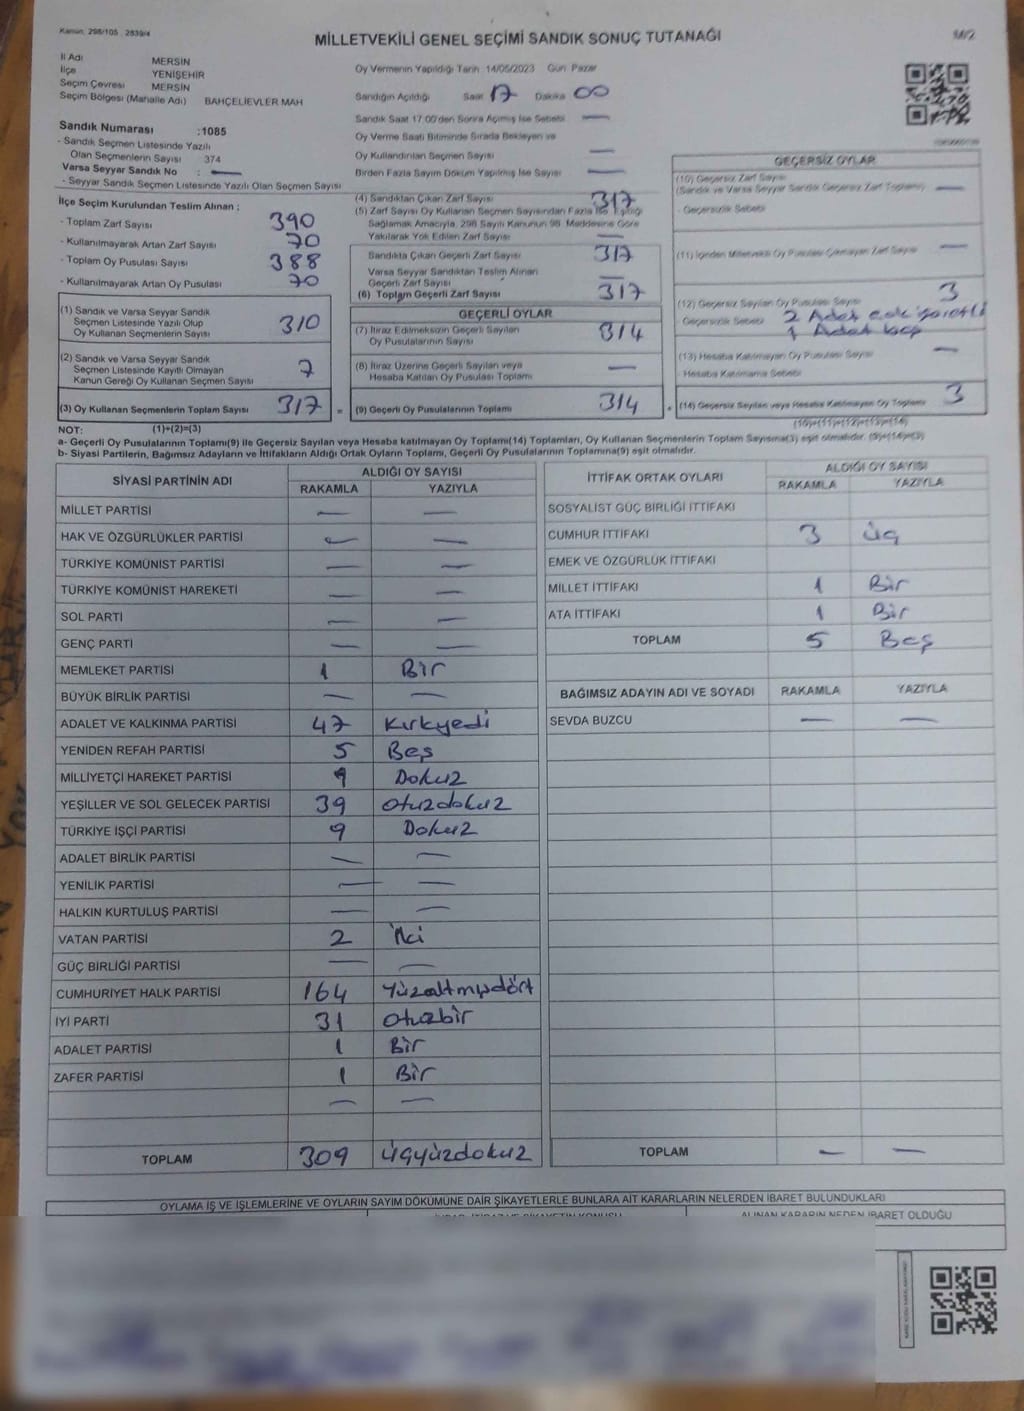 Kanun: 298/105 , 2839/4
MİLLETVEKİLİ GENEL SEÇİMİ SANDIK SONUÇ TUTANAĞI
M/2
İl Adı MERSİN
İlçe YENİŞEHİR
Seçim Çevresi MERSİN
Seçim Bölgesi (Mahalle Adı) BAHÇELİEVLER MAH
Sandık Numarası :1085
- Sandık Seçmen Listesinde Yazılı
Olan Seçmenlerin Sayısı 374
Varsa Seyyar Sandık No : —
- Seyyar Sandık Seçmen Listesinde Yazılı Olan Seçmen Sayısı
Oy Vermenin Yapıldığı Tarih 14/05/2023 Gün Pazar
Sandığın Açıldığı Saat 17 Dakika 00
Sandık Saat 17.00'den Sonra Açılmış İse Sebebi —
Oy Verme Saati Bitiminde Sırada Bekleyen ve
Oy Kullandırılan Seçmen Sayısı —
Birden Fazla Sayım Döküm Yapılmış İse Sayısı —
İlçe Seçim Kurulundan Teslim Alınan ;
- Toplam Zarf Sayısı 390
- Kullanılmayarak Artan Zarf Sayısı 70
- Toplam Oy Pusulası Sayısı 388
- Kullanılmayarak Artan Oy Pusulası 70
(1) Sandık ve Varsa Seyyar Sandık
Seçmen Listesinde Yazılı Olup
Oy Kullanan Seçmenlerin Sayısı 310
(2) Sandık ve Varsa Seyyar Sandık
Seçmen Listesinde Kayıtlı Olmayan
Kanun Gereği Oy Kullanan Seçmen Sayısı 7
(3) Oy Kullanan Seçmenlerin Toplam Sayısı 317 =
(4) Sandıktan Çıkan Zarf Sayısı 317
(5) Zarf Sayısı Oy Kullanan Seçmen Sayısından Fazla İse Eşitliği
Sağlamak Amacıyla, 298 Sayılı Kanunun 98. Maddesine Göre
Yakılarak Yok Edilen Zarf Sayısı —
Sandıkta Çıkan Geçerli Zarf Sayısı 317
Varsa Seyyar Sandıktan Teslim Alınan
Geçerli Zarf Sayısı —
(6) Toplam Geçerli Zarf Sayısı 317
GEÇERLİ OYLAR
(7) İtiraz Edilmeksizin Geçerli Sayılan
Oy Pusulalarının Sayısı 314
(8) İtiraz Üzerine Geçerli Sayılan veya
Hesaba Katılan Oy Pusulası Toplamı —
(9) Geçerli Oy Pusulalarının Toplamı 314 +
GEÇERSİZ OYLAR
(10) Geçersiz Zarf Sayısı
(Sandık ve Varsa Seyyar Sandık Geçersiz Zarf Toplamı) —
- Geçersizlik Sebebi
(11) İçinden Milletvekili Oy Pusulası Çıkmayan Zarf Sayısı —
(12) Geçersiz Sayılan Oy Pusulası Sayısı 3
- Geçersizlik Sebebi 2 Adet çok işaretli
1 Adet boş
(13) Hesaba Katılmayan Oy Pusulası Sayısı —
- Hesaba Katılmama Sebebi
(14) Geçersiz Sayılan veya Hesaba Katılmayan Oy Toplamı 3
NOT: (1)+(2)=(3)
(10)+(11)+(12)+(13)=(14)
a- Geçerli Oy Pusulalarının Toplamı(9) ile Geçersiz Sayılan veya Hesaba katılmayan Oy Toplamı(14) Toplamları, Oy Kullanan Seçmenlerin Toplam Sayısına(3) eşit olmalıdır. (9)+(14)=(3)
b- Siyasi Partilerin, Bağımsız Adayların ve İttifakların Aldığı Ortak Oyların Toplamı, Geçerli Oy Pusulalarının Toplamına(9) eşit olmalıdır.
SİYASİ PARTİNİN ADI ALDIĞI OY SAYISI
RAKAMLA YAZIYLA
MİLLET PARTİSİ — —
HAK VE ÖZGÜRLÜKLER PARTİSİ — —
TÜRKİYE KOMÜNİST PARTİSİ — —
TÜRKİYE KOMÜNİST HAREKETİ — —
SOL PARTİ — —
GENÇ PARTİ — —
MEMLEKET PARTİSİ 1 Bir
BÜYÜK BİRLİK PARTİSİ — —
ADALET VE KALKINMA PARTİSİ 47 Kırkyedi
YENİDEN REFAH PARTİSİ 5 Beş
MİLLİYETÇİ HAREKET PARTİSİ 9 Dokuz
YEŞİLLER VE SOL GELECEK PARTİSİ 39 otuzdokuz
TÜRKİYE İŞÇİ PARTİSİ 9 Dokuz
ADALET BİRLİK PARTİSİ — —
YENİLİK PARTİSİ — —
HALKIN KURTULUŞ PARTİSİ — —
VATAN PARTİSİ 2 İki
GÜÇ BİRLİĞİ PARTİSİ — —
CUMHURİYET HALK PARTİSİ 164 Yüzaltmışdört
İYİ PARTİ 31 otuzbir
ADALET PARTİSİ 1 Bir
ZAFER PARTİSİ 1 Bir
— —
TOPLAM 309 Üçyüzdokuz
İTTİFAK ORTAK OYLARI ALDIĞI OY SAYISI
RAKAMLA YAZIYLA
SOSYALİST GÜÇ BİRLİĞİ İTTİFAKI
CUMHUR İTTİFAKI 3 Üç
EMEK VE ÖZGÜRLÜK İTTİFAKI
MİLLET İTTİFAKI 1 Bir
ATA İTTİFAKI 1 Bir
TOPLAM 5 Beş
BAĞIMSIZ ADAYIN ADI VE SOYADI RAKAMLA YAZIYLA
SEVDA BUZCU — —
TOPLAM — —
OYLAMA İŞ VE İŞLEMLERİNE VE OYLARIN SAYIM DÖKÜMÜNE DAİR ŞİKAYETLERLE BUNLARA AİT KARARLARIN NELERDEN İBARET BULUNDUKLARI
ALINAN KARARIN NEDEN İBARET OLDUĞU